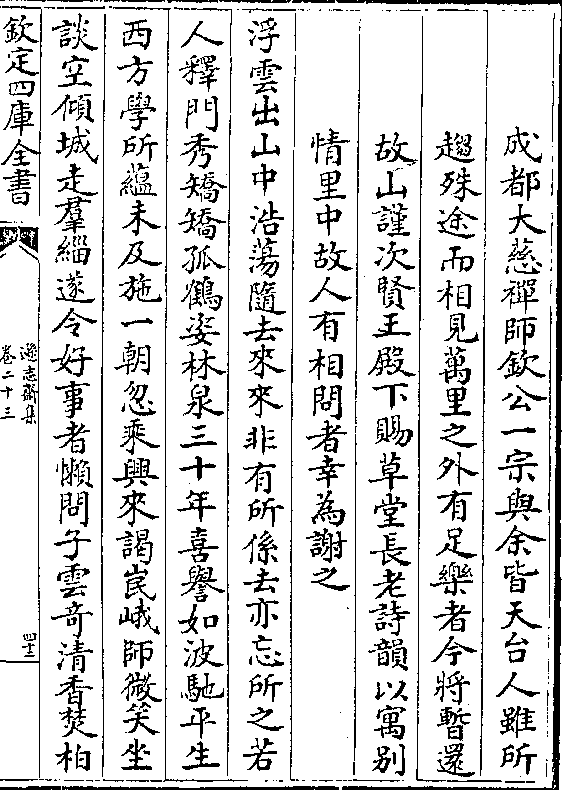 成都大慈禪師欽公一宗與余皆天台人雖所
趨殊途而相見萬里之外有足樂者今將暫還
故山謹次賢王殿下賜草堂長老詩韻以寓别
情里中故人有相問者幸為謝之
浮雲出山中浩蕩隨去來來非有所係去亦忘所之若
人釋門秀矯矯孤鶴姿林泉三十年喜譽如波馳平生
西方學所藴未及施一朝忽乘興來謁岷峨師微笑坐
談空傾城走羣緇遂令好事者懶問子雲奇清香焚柏
欽定四庫全書
遜志齋集
卷二十三
四十三